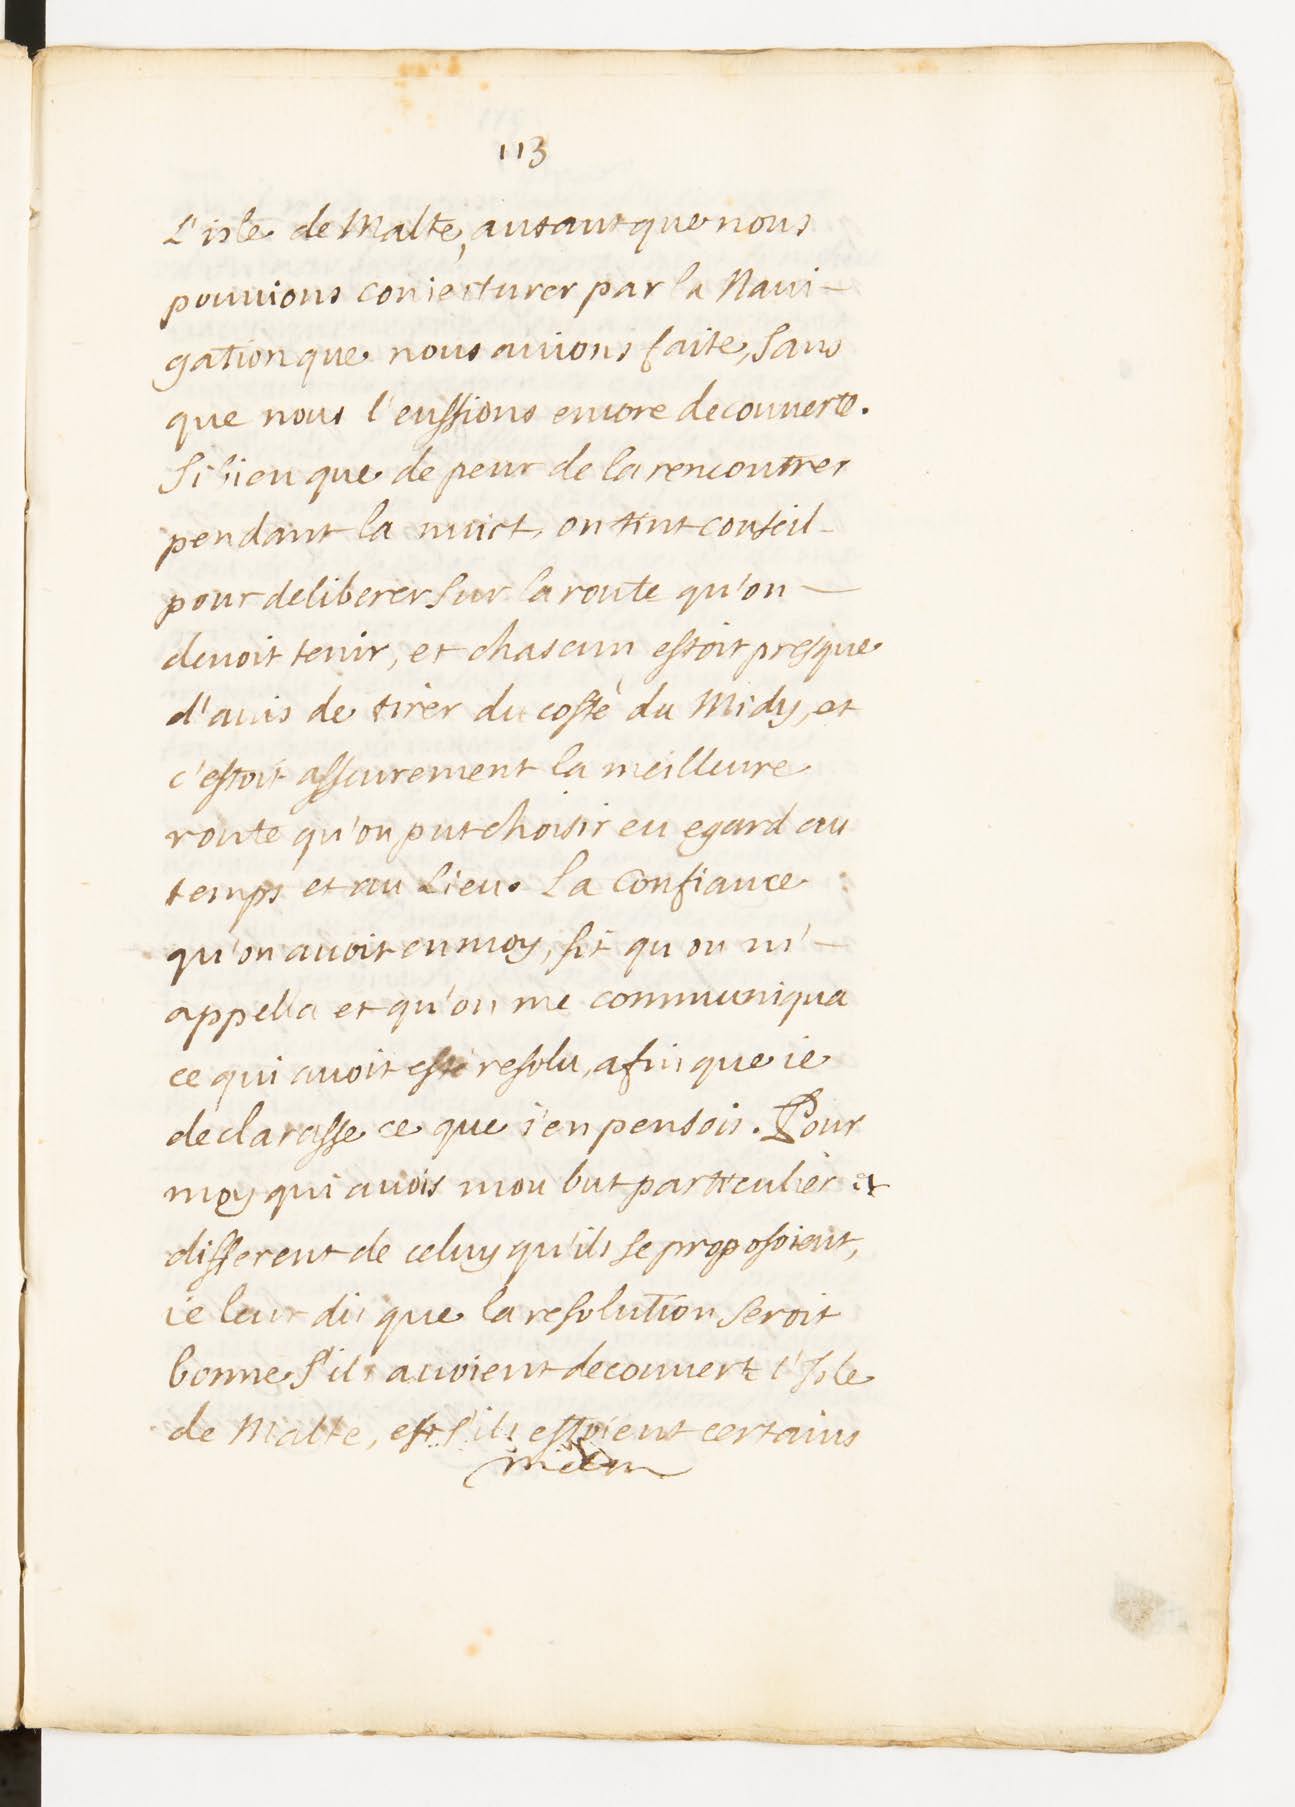 113
L'isle de Malte, autant que nous
pouuions coniecturer par la Naui-
gation que nous auions faite, sans
que nous l'eussions encore decouuerte.
Si bien que de peur de la rencontrer
pendant la nuict, on tint conseil
pour deliberer sur la route qu'on
deuoit tenir, et chascun estoit presque
d'auis de tirer du costé du Midy, et
c'estoit asseurement la meilleure
route qu'on put choisir eu egard au
temps et au Lieu. La Confiance
qu'on auoit en moy, fit qu'on m'-
appella et qu'on me communiqua
ce qui auoit esté resolu, afin que ie
declarasse ce que i'en pensois. Pour
moy qui auois mon but particulier et
different de celuy qu'ils se proposoient,
ie leur dis que la resolution seroit
bonne s'ils auoient decouuert l'Isle
de Malte, et s'ils estoient certains